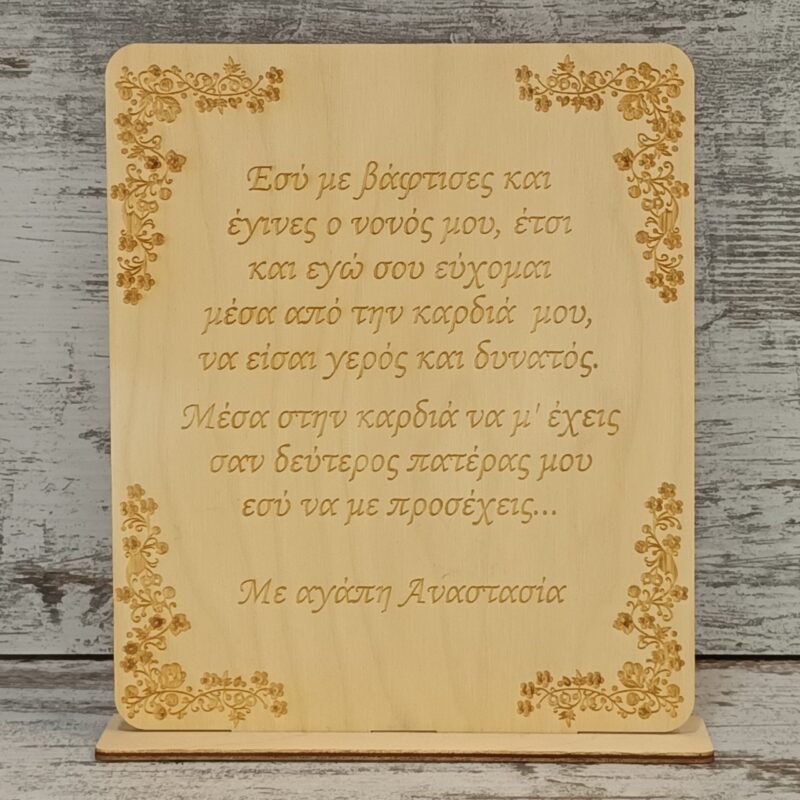 Εσύ με βάφτισες και
έγινες ο νονός μου, έτσι
και εγώ σου εύχομαι
μέσα από την καρδιά μου,
να είσαι γερός και δυνατός.
Μέσα στην καρδιά να μ' έχεις
σαν δεύτερος πατέρας μου
εσύ να με προσέχεις...
Με αγάπη Αναστασία